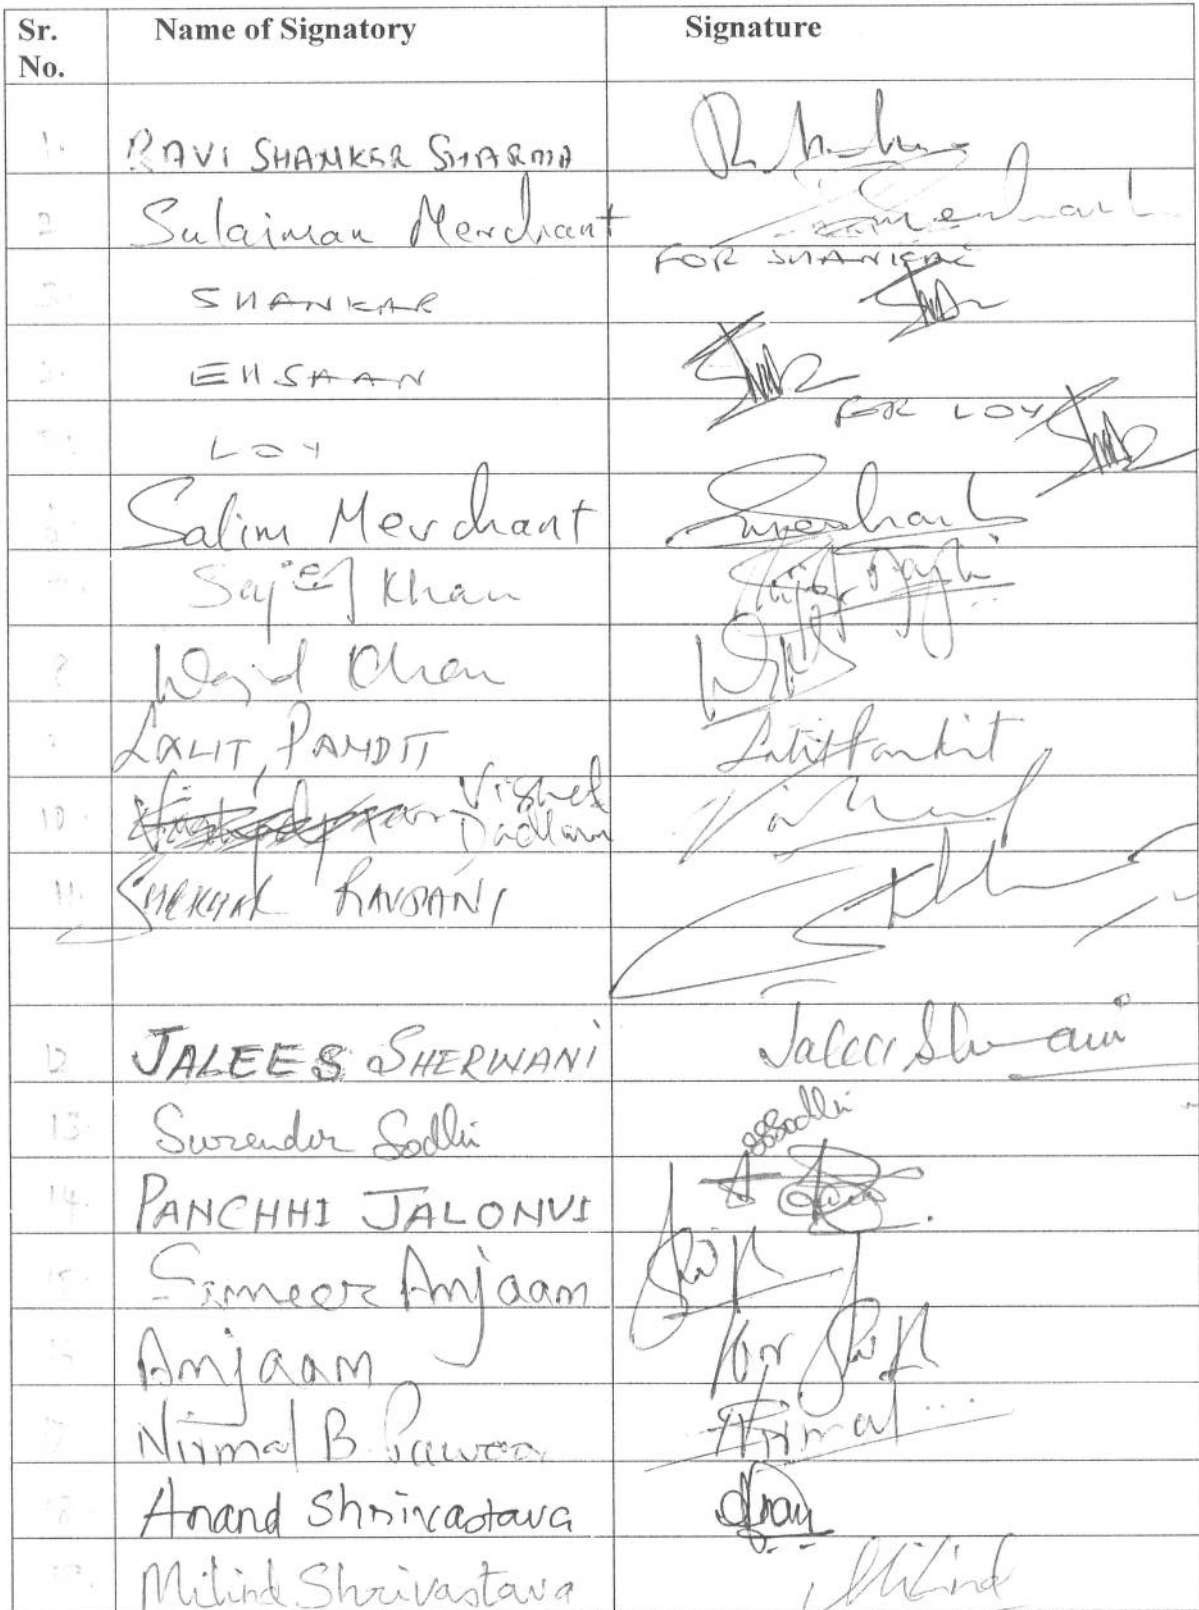 Sr. No. Name of Signatory Signature
1. RAVI SHANKER SHARMA
2. Sulaiman Merchant
FOR SHANKAR
3. SHANKAR
EHSAAN
FOR LOY
LOY
Salim Merchant
Sajid Khan
8 Wajid Khan
LALIT PANDIT Lalit Pandit
10. Vishal Dadlani Vishal
11. SHEKHAR RAVJIANI
12 JALEES SHERWANI Jalees Sherwani
13. Surender Sodhi SSodhi
14. PANCHHI JALONVI
15. Sameer Anjaan
16 Anjaan for
17 Nirmal B Pawar Nirmal
18. Anand Shrivastava
19. Milind Shrivastava Milind